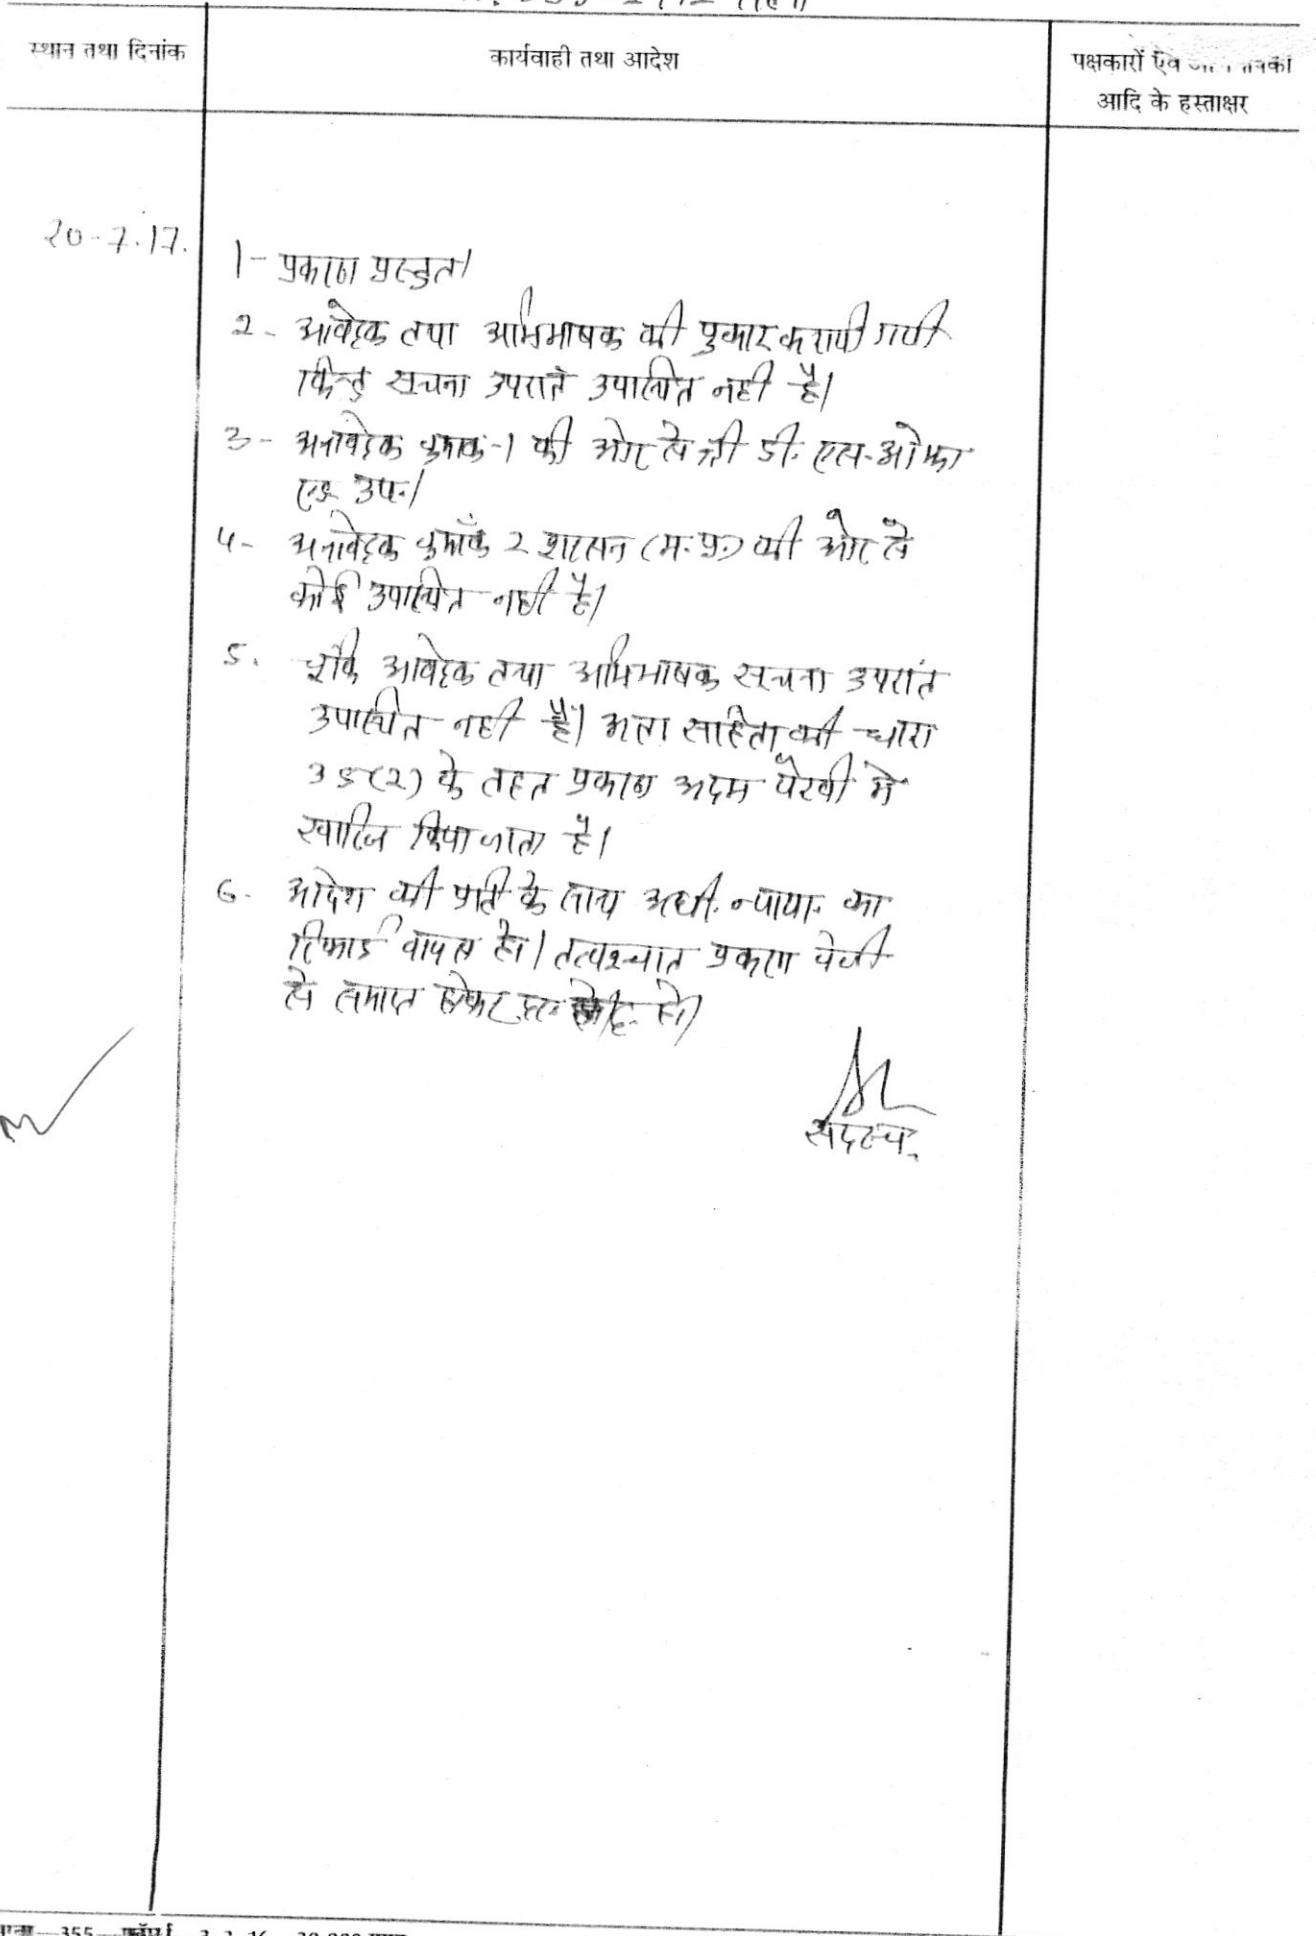 स्थान तथा दिनांक
कार्यवाही तथा आदेश
पक्षकारों एवं
आदि के हस्ताक्षर
20-7-17.
1- प्रकरण प्रस्तुत।
2- आवेदक तथा अभिभाषक की पुकार करायी गयी
किन्तु सूचना उपरांत उपस्थित नहीं है।
3- अनावेदक क्रमांक-1 की ओर से श्री डी. एस. ओझा
एड. उप.।
4- अनावेदक क्रमाँक 2 शासन (म.प्र.) की ओर से
कोई उपस्थित नहीं है।
5. चूँकि आवेदक तथा अभिभाषक सूचना उपरांत
उपस्थित नहीं हैं। अतः संहिता की धारा
35(2) के तहत प्रकरण अदम पैरवी में
खारिज किया जाता है।
6. आदेश की प्रति के साथ अधी. न्याया. का
रिकार्ड वापस हो। तत्पश्चात प्रकरण पंजी
से समाप्त होकर द. हो।
सदस्य
355